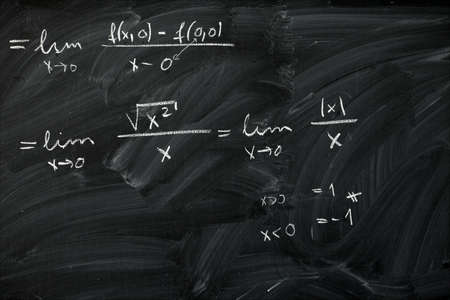 = lim x→0 f(x,0) - f(0,0) / x - 0
= lim x→0 √x² / x = lim x→0 |x| / x
x>0 = 1 *
x<0 = -1